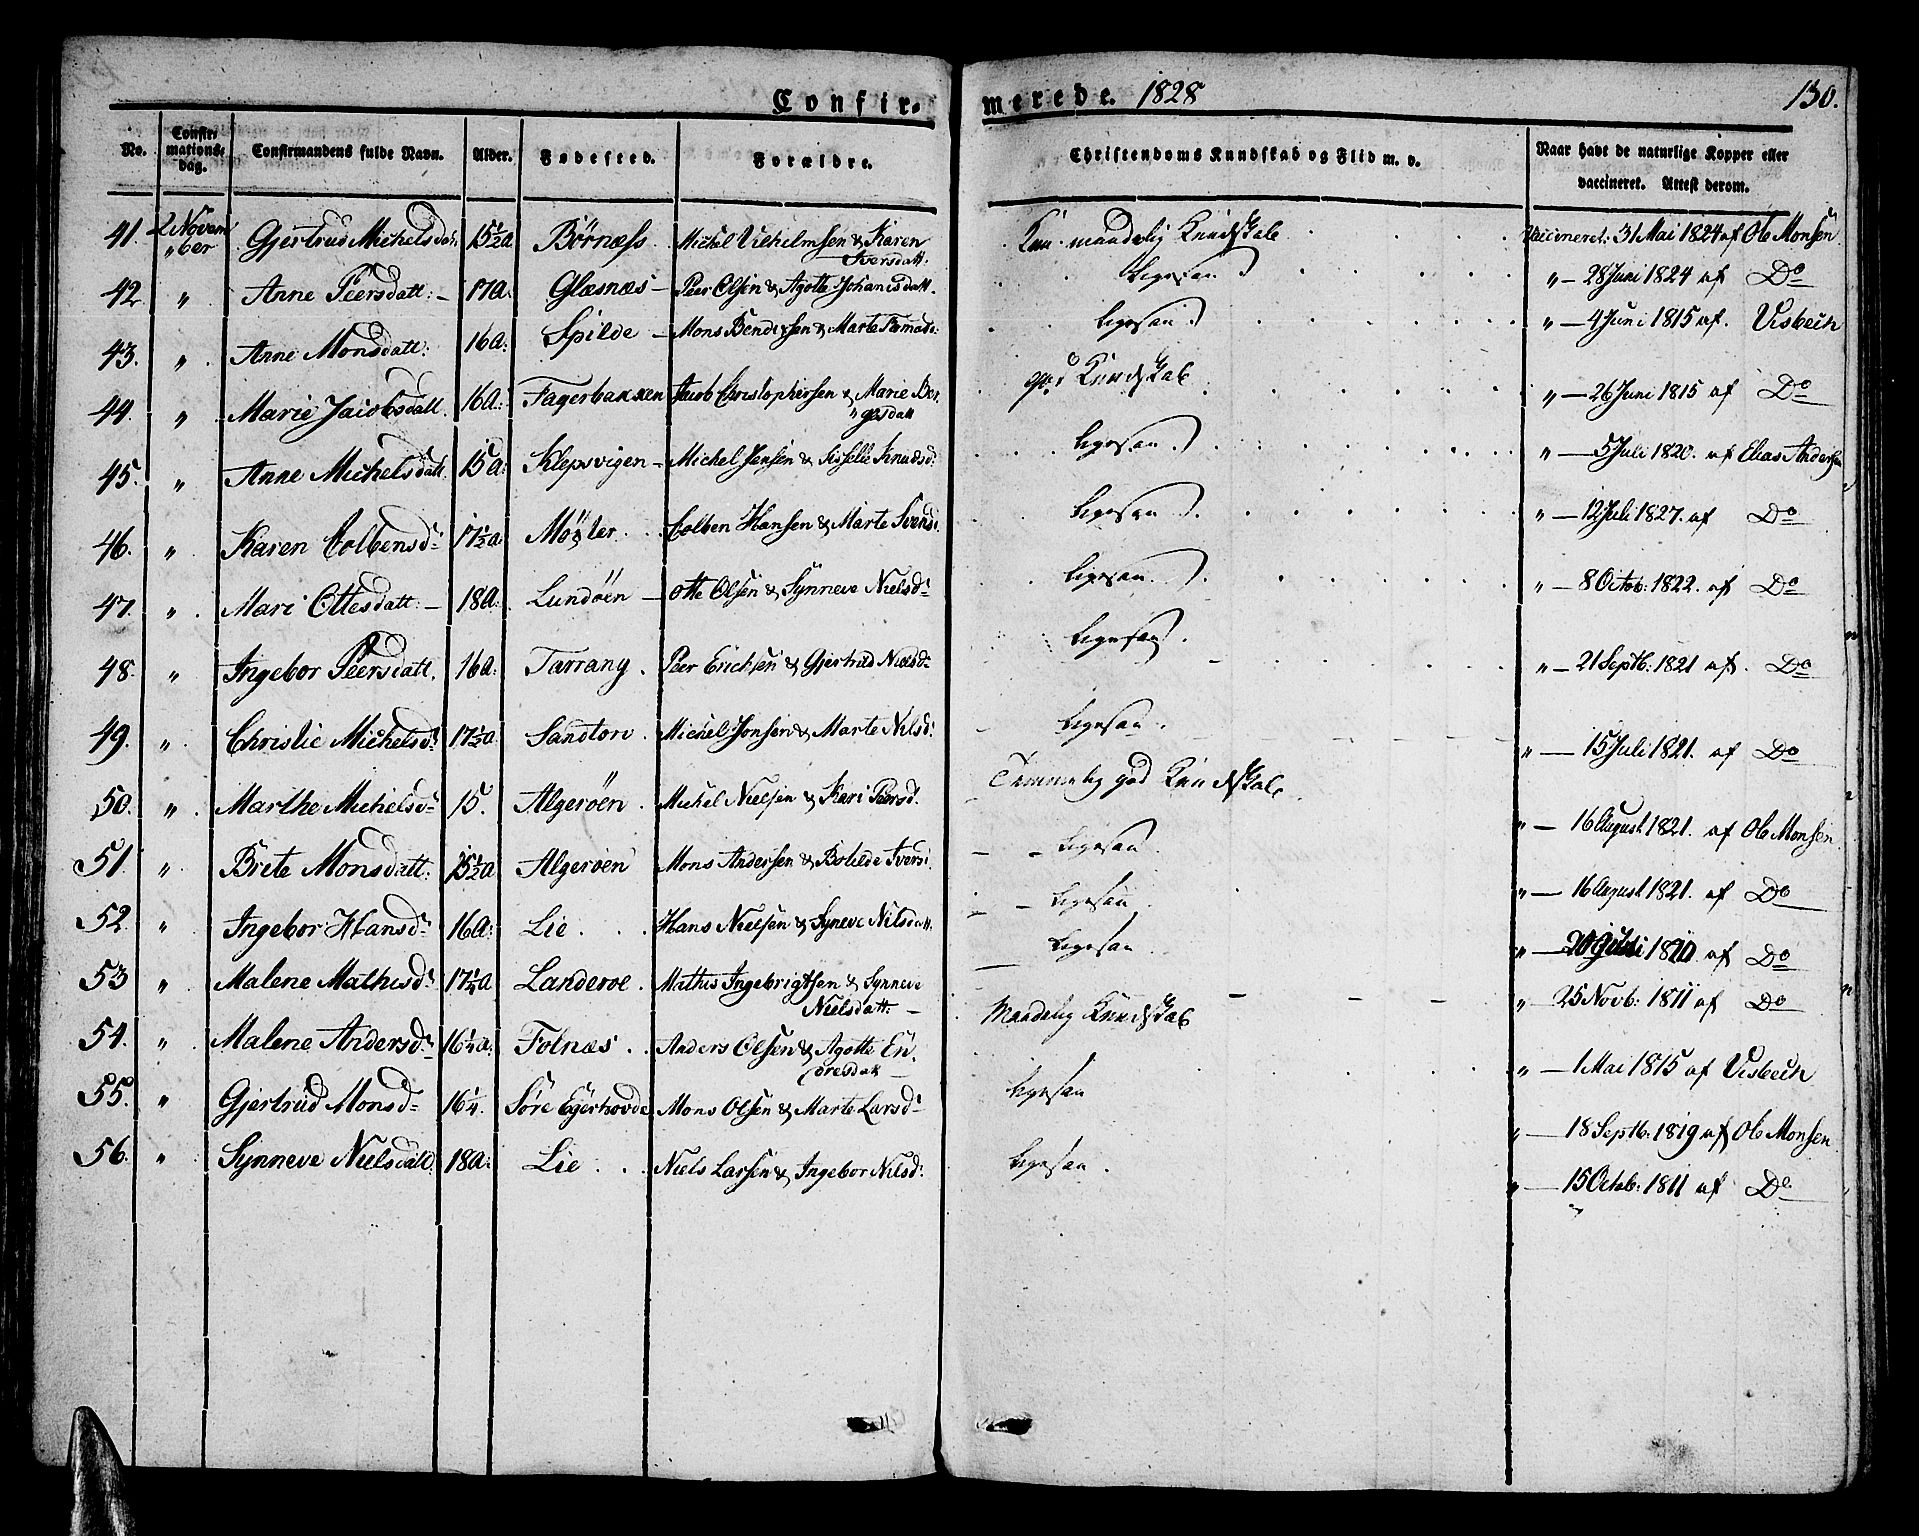 Confir- merede. 1828 130.
No. Confirmationsdag. Confirmandens fulde Navn. Alder. Fødested. Forældre. Christendoms Kundskab og Flid m. v. Naar havt de naturlige Kopper eller vaccineret. Attest derom.
41. 2 Novem"ber Gjertrud Michelsdatt 15½a Børnæss. Michel Vilhelmsen & Karen Iversdatt. Kun maadelig Kundskab Vaccineret: 31 Mai 1824 af Ole Monsen
42. " Anne Peersdatt: – 17a: Glæsnæs – Peer Olsen & Agotte Johanisdatt. Ligesaa " – 28 Juni 1824 af Do
43. " Anne Monsdatt: 16a: Spilde – Mons Bendixsen & Marte Tomasd: Ligesaa " – 4 Juni 1815 af. Visbech
44. " Marie Jacobsdatt. 16a: Fagerbakken Jacob Christophersen & Marie Bør"gesdatt god Kundskab " – 26 Juni 1815 af Do
45. " Anne Michelsdatt. 15a: Klepsvigen – Michel Jansen & Sisselie Knudsd: Ligesaa " – 5 Juli 1820. af Elias Andersen
46. " Karen Colbensd: 17½a: Møgster . Colben Hansen & Marte Svensd: Ligesaa " – 12 Juli 1827. af Do
47. " Mari Ottesdatt: – 18a. Lundøen – Otte Olsen & Synneve Nielsd: Ligesaa " – 8 Octob: 1822. af Do
48. " Ingebor Peersdatt. 16a: Tarrang . Peer Erichsen & Gjertrud Nielsd: Ligesaa " – 21 Septb: 1821 af. Do
49. " Christie Michelsd: 17½a: Sandtorv . Michel Jonsen & Marte Nilsd: Ligesaa " – 15 Juli 1821. af Do
50. " Marthe Michelsd: 15. Algerøen . Michel Nielsen & Kari Peersd. Temmelig god Kundskab " – 16 August 1821. af Ole Monsen
51. " Brete Monsdatt: 15½a Algerøen Mons Andersen & Botilde Iversd: Ligesaa " – 16 August 1821. af Do
52. " Ingebor Hansd: 16a: Lie . . . Hans Nielsen & Syneve Nilsdatt. Ligesaa " – 20 Juli af Do
53 " Malene Mathisd: 17¼a Landeroe . Mathis Ingebrigtsen & Synneve Nielsdatt: – Ligesaa " – 25 Novb: 1811 af Do
54. " Malene Andersd: 16¼a: Folnæs . . Anders Olsen & Agotte En-oresdatt – Maadelig Kundskab " – 1 Mai 1815 af Visbech
55. " Gjertrud Monsd: 16¼. Søre Egerhovde Mons Olsen & Marte Larsd: Ligesaa " – 18 Septb: 1819 af Ole Monsen
56. " Synneve Nielsdatt: 18a: Lie . . . Niels Larsen & Ingebor Nilsd: Ligesaa . " – 15 Octob: 1811 af Do